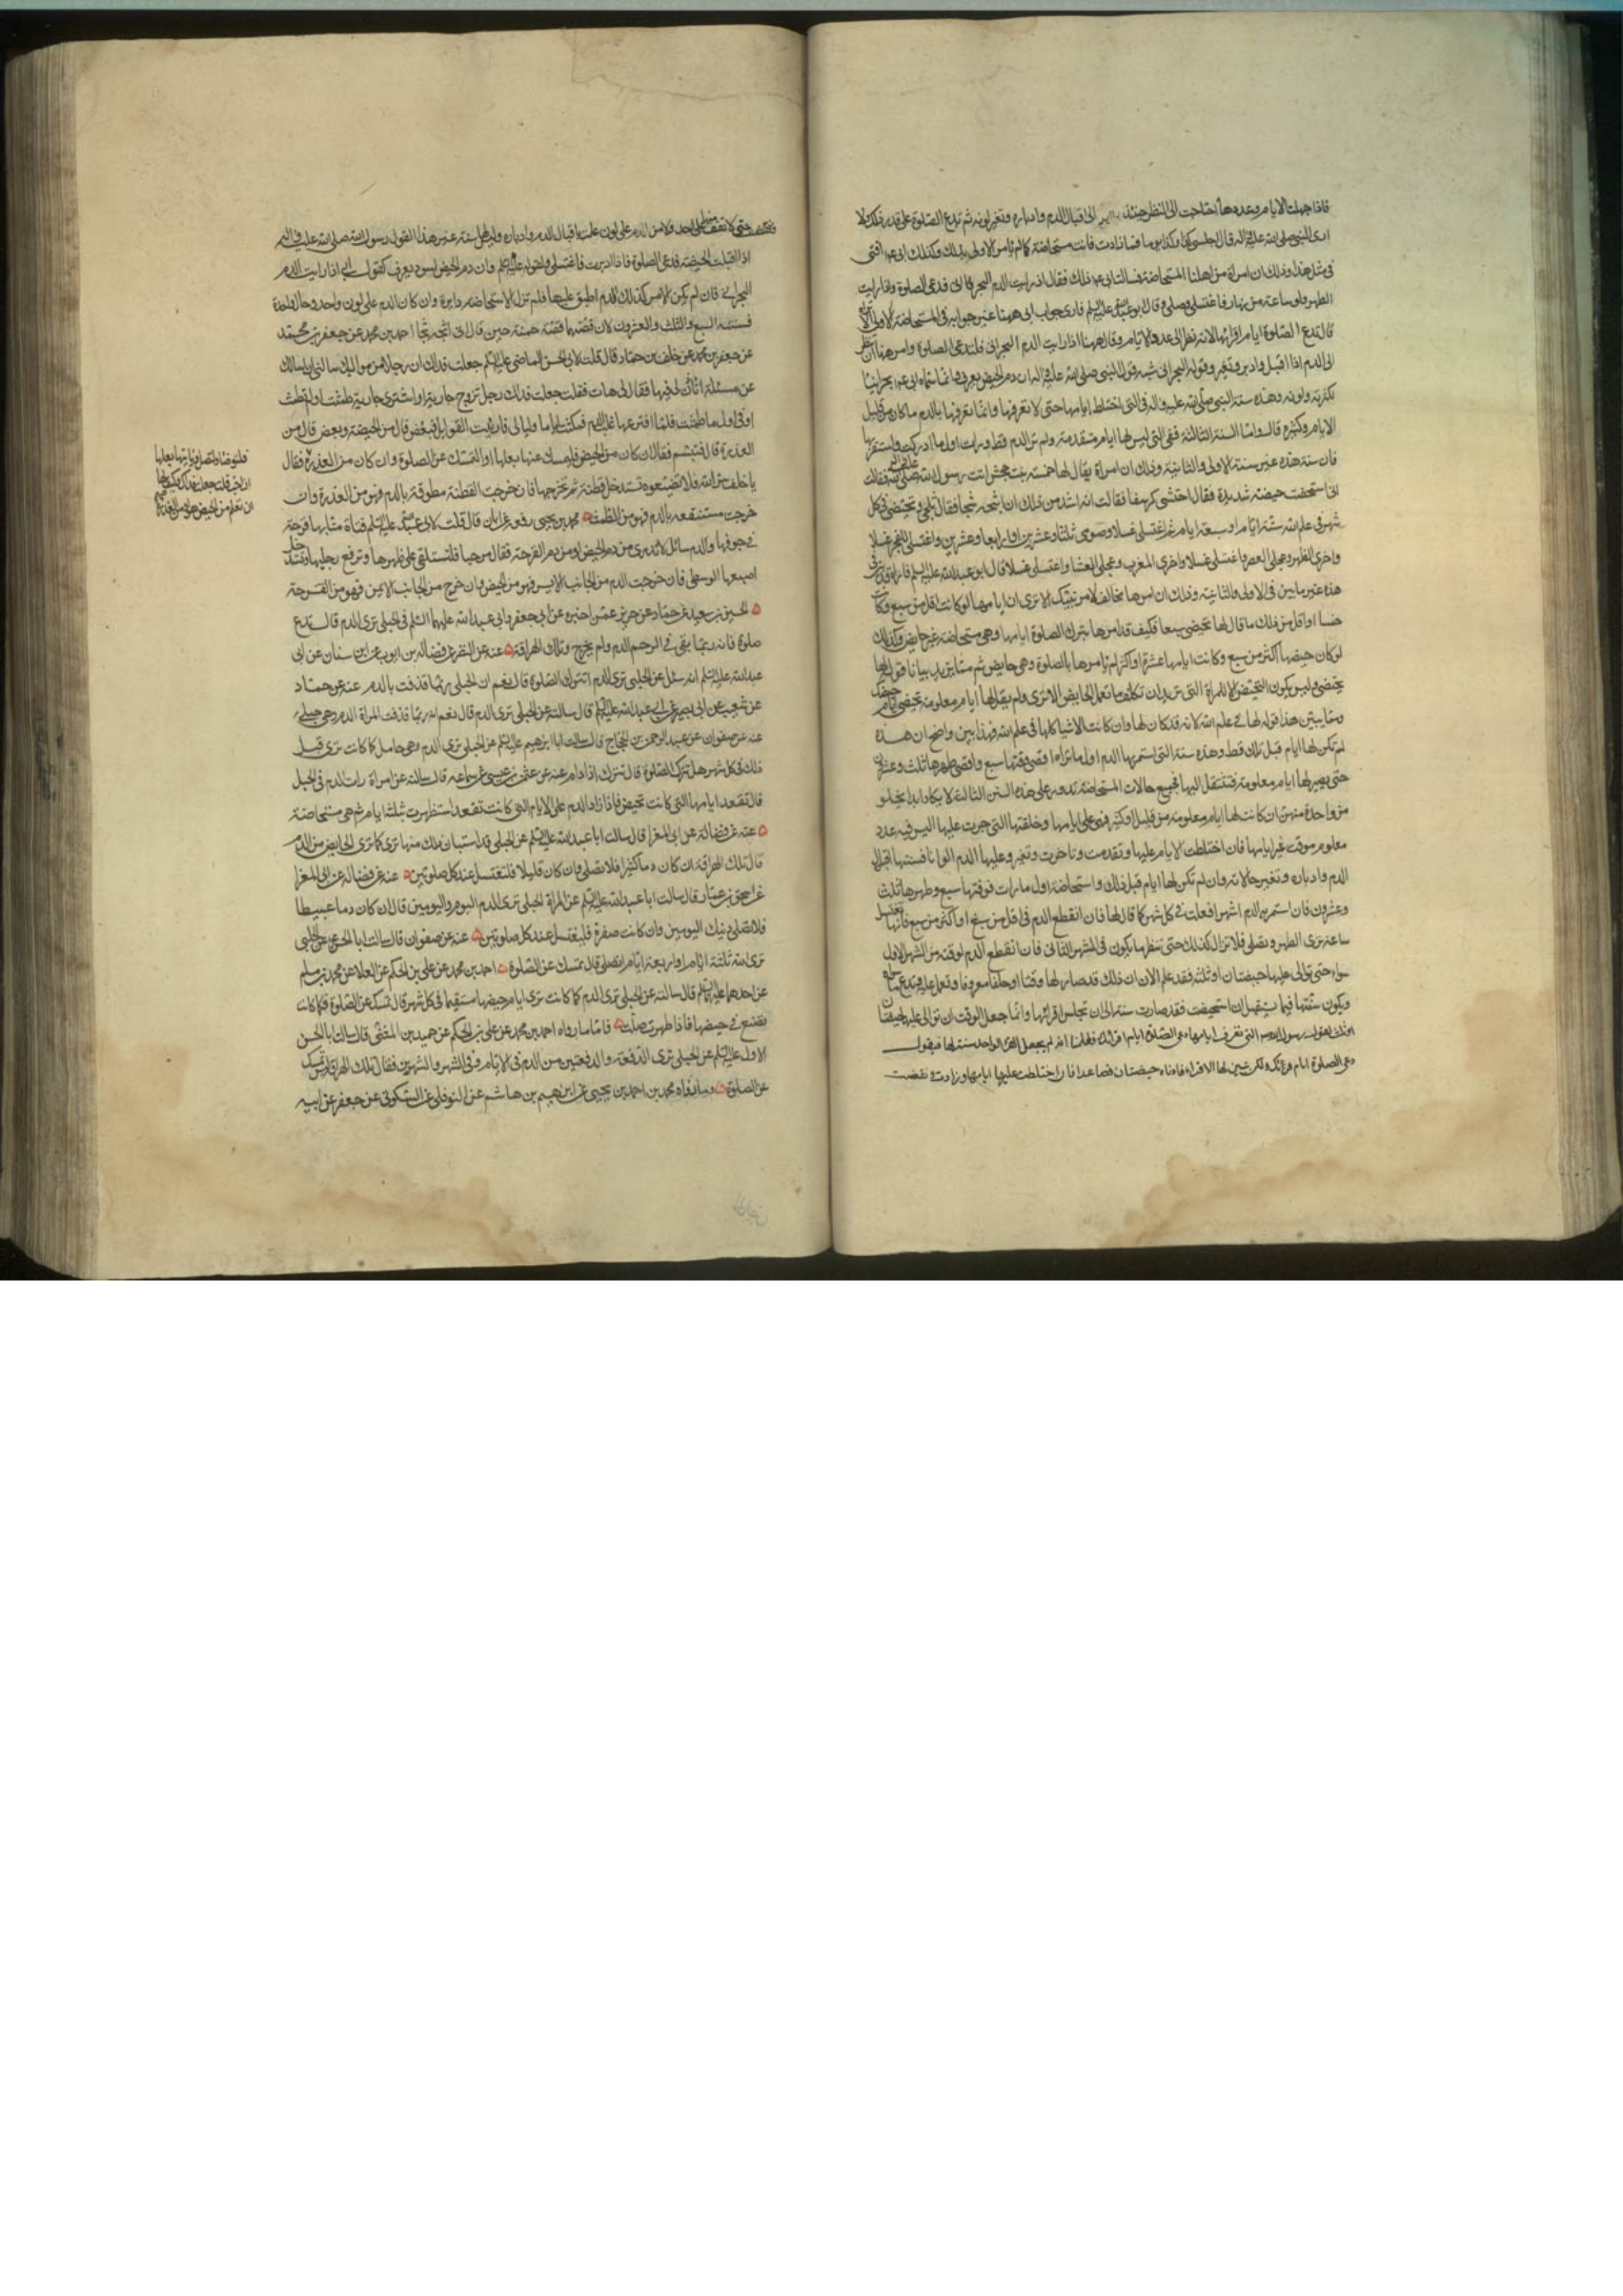 فاذا جهلت الايام وعددها احتاجت الى النظر حينئذ الى اقبال الدم وادباره وتغير لونه ثم تدع الصلوة على قدر ذلك ولا
ارى النبي صلى الله عليه واله قال اجلسي كذا وكذا يوما فما زادت فانت مستحاضة كما لم يامر الاولى بذلك وكذلك ابي ع افتى
في مثل هذا وذلك ان امراة من اهلنا استحاضت فسالت ابي ع عن ذلك فقال اذا رايت الدم البحراني فدعي الصلوة واذا رايت
الطهر ولو ساعة من نهار فاغتسلي وصلي قال ابو عبد الله عليه السلم فارى جواب ابي ههنا غير جوابه في المستحاضة الاولى الا
قال تدع الصلوة ايام اقرائها لانه نظر الى عدد الايام وقال ههنا اذا رايت الدم البحراني فلتدع الصلوة وامر ههنا ان تنظر
الى الدم اذا اقبل وادبر وتغير وقوله البحراني شبه قول النبي صلى الله عليه واله ان دم الحيض يعرف وانما سماه ابي ع بحرانيا
لكثرته ولونه وهذه سنة النبي صلى الله عليه واله في التي اختلط ايامها حتى لا تعرفها وانما تعرفها بالدم ما كان من قليل
الايام وكثيره قال واما السنة الثالثة ففي التي ليس لها ايام متقدمة ولم تر الدم قط ورات اول ما ادركت واستمر بها
فان سنة هذه غير سنة الاولى والثانية وذلك ان امراة يقال لها حمنة بنت جحش اتت رسول الله صلى الله عليه واله فقالت
اني استحضت حيضة شديدة فقال احتشي كرسفا فقالت انه اشد من ذلك اني اثجه ثجا فقال تلجمي وتحيضي في كل
شهر في علم الله ستة ايام او سبعة ايام ثم اغتسلي غسلا وصومي ثلثا وعشرين او اربعا وعشرين واغتسلي للفجر غسلا
واخري الظهر وعجلي العصر واغتسلي غسلا واخري المغرب وعجلي العشا واغتسلي غسلا قال ابو عبد الله عليه السلم فاراه قد سن في
هذه غير ما بين في الاولى والثانية وذلك ان امرها مخالف لامر تينك الا ترى ان ايامها لو كانت اقل من سبع وكانت
خمسا او اقل من ذلك ما قال لها تحيضي سبعا فيكون قد امرها بترك الصلوة اياما وهي مستحاضة غير حايض وكذلك
لو كان حيضها اكثر من سبع وكانت ايامها عشرة او اكثر لم يامرها بالصلوة وهي حايض ثم مما يزيد بيانا قوله لها
تحيضي وليس يكون التحيض الا للمراة التي تريد ان تكلف ما تعمل الحايض الا ترى ولم يقل لها اياما معلومة تحيضي ايام حيضك
ومما يبين هذا قوله لها في علم الله لانه قد كان لها وان كانت الاشيا كلها في علم الله وهذا بين واضح ان هذه
لم تكن لها ايام قبل ذلك قط وهذه سنة التي استمر بها الدم اول ما تراه اقصى وقتها سبع واقصى طهرها ثلث وعشرون
حتى يصير لها ايام معلومة فتنتقل اليها فجميع حالات المستحاضة تدور على هذه السنن الثالثة لا يكاد ابدا يخلو
من واحدة منهن ان كانت لها ايام معلومة من قليل او كثير فهي على ايامها وخلقتها التي جرت عليها ليس فيه عدد
معلوم موقت غير ايامها فان اختلطت الايام عليها وتقدمت وتاخرت وتغير عليها الدم الوانا فسنتها اقبال
الدم وادباره وتغير حالاته وان لم تكن لها ايام قبل ذلك واستحاضت اول ما رات فوقتها سبع وطهرها ثلث
وعشرون فان استمر بها الدم اشهرا فعلت في كل شهر كما قال لها فان انقطع الدم في اقل من سبع او اكثر من سبع فانها تغتسل
ساعة ترى الطهر وتصلي فلا تزال كذلك حتى تنظر ما يكون في الشهر الثاني فان انقطع الدم لوقته من الشهر الاول
سواء حتى توالى عليها حيضتان او ثلثة فقد علم الان ان ذلك قد صار لها وقتا وخلقا معروفا تعمل عليه وتدع ما سواه
ويكون سنتها فيما يستقبل ان استحيضت فقد صارت سنة الى ان تجلس اقرائها وانما جعل الوقت ان توالى عليها حيضتان
دعي الصلوة ايام اقرائك فعلمنا انه لم يجعل القرء الواحد سنة لها فيقول
دعي الصلوة ايام قرئك ولكن سن لها الاقراء فادناه حيضتان فصاعدا فان اختلطت عليها ايامها وزادت ونقصت
حتى لا تقف منها على حد ولا من الدم على لون عملت باقبال الدم وادباره وليس لها سنة غير هذا لقول رسول الله صلى الله عليه واله
اذا اقبلت الحيضة فدعي الصلوة فاذا ادبرت فاغتسلي ولقوله عليه السلم وان دم الحيض اسود يعرف كقول ابي اذا رايت الدم
البحراني فان لم يكن الامر كذلك ولكن الدم اطبق عليها فلم تزل الاستحاضة دايرة وان كان الدم على لون واحد وحالة واحدة
فسنتها السبع والثلث والعشرون لان قصتها قصة حمنة حين قال اني اثجه ثجا احمد بن محمد عن جعفر بن محمد
عن جعفر بن محمد عن خلف بن حماد قال قلت لابي الحسن الماضي عليه السلم جعلت فداك ان رجلا من مواليك سالني ان اسالك
عن مسئلة اتاذن لي فيها فقال لي هات فقلت جعلت فداك رجل تزوج جارية او اشترى جارية طمثت او لم تطمث
او في اول ما طمثت فلما افترعها غلب الدم فمكثت اياما وليالي فاريت القوابل فبعض قال من الحيضة وبعض قال من
العذرة قال فتبسم فقال ان كان من الحيض فليمسك عنها بعلها او لتمسك عن الصلوة وان كان من العذرة فقال
يا خلف سر الله فلا تضيعوه تستدخل قطنة ثم تخرجها فان خرجت القطنة مطوقة بالدم فهو من العذرة وان
خرجت مستنقعة بالدم فهو من الطمث محمد بن يحيى رفعه عن ابان قال قلت لابي عبد الله عليه السلم فتاة منا بها قرحة
في جوفها والدم سائل لا تدري من دم الحيض او من دم القرحة فقال مرها فلتستلق على ظهرها وترفع رجليها وتستدخل
اصبعها الوسطى فان خرجت الدم من الجانب الايسر فهو من الحيض وان خرج من الجانب الايمن فهو من القرحة
الحسين بن سعيد عن حماد عن حريز عمن اخبره عن ابي جعفر وابي عبد الله عليهما السلم في الحبلى ترى الدم قال تدع
صلوة فانه ربما بقي في الرحم الدم ولم يخرج وتلك الهراقة عنه عن النضر عن فضالة بن ايوب عن ابن سنان عن ابي
عبد الله عليه السلم انه سئل عن الحبلى ترى الدم اتترك الصلوة قال نعم ان الحبلى ربما قذفت بالدم عنه عن حماد
عن شعيب عن ابي بصير عن ابي عبد الله عليه السلم قال سالته عن الحبلى ترى الدم قال نعم انه ربما قذفت المراة الدم وهي حبلى
عنه عن صفوان عن عبد الرحمن بن الحجاج قال سالت ابا ابرهيم عليه السلم عن الحبلى ترى الدم وهي حامل كما كانت ترى قبل
ذلك في كل شهر هل تترك الصلوة قال تترك اذا دام عنه عن عثمن بن عيسى عن سماعة قال سالته عن امراة رات الدم في الحبل
قال تقعد ايامها التي كانت تحيض فاذا زاد الدم على الايام التي كانت تقعد استظهرت بثلثة ايام ثم هي مستحاضة
عنه عن فضالة عن ابي المغرا قال سالت ابا عبد الله عليه السلم عن الحبلى قد استبان ذلك منها ترى كما ترى الحايض من الدم
قال تلك الهراقة ان كان دما كثيرا فلا تصلي وان كان قليلا فلتغتسل عند كل صلوتين عنه عن فضالة عن ابي المغرا
عن اسحق بن عمار قال سالت ابا عبد الله عليه السلم عن المراة الحبلى ترى الدم اليوم واليومين قال ان كان دما عبيطا
فلا تصلي ذينك اليومين وان كانت صفرة فلتغتسل عند كل صلوتين عنه عن صفوان قال سالت ابا الحسن عن الحبلى
ترى الدم ثلثة ايام او اربعة ايام تصلي قال تمسك عن الصلوة احمد بن محمد عن علي بن الحكم عن العلا عن محمد بن مسلم
عن احدهما عليهما السلم قال سالته عن الحبلى ترى الدم كما كانت ترى ايام حيضها مستقيما في كل شهر قال تمسك عن الصلوة كما كانت
تصنع في حيضها فاذا طهرت صلت فاما ما رواه احمد بن محمد عن علي بن الحكم عن حميد بن المثنى قال سالت ابا الحسن
الاول عليه السلم عن الحبلى ترى الدفعة والدفعتين من الدم في الايام وفي الشهر والشهرين فقال تلك الهراقة ليس تمسك
عن الصلوة وما رواه محمد بن احمد بن يحيى عن ابرهيم بن هاشم عن النوفلي عن السكوني عن جعفر عن ابيه